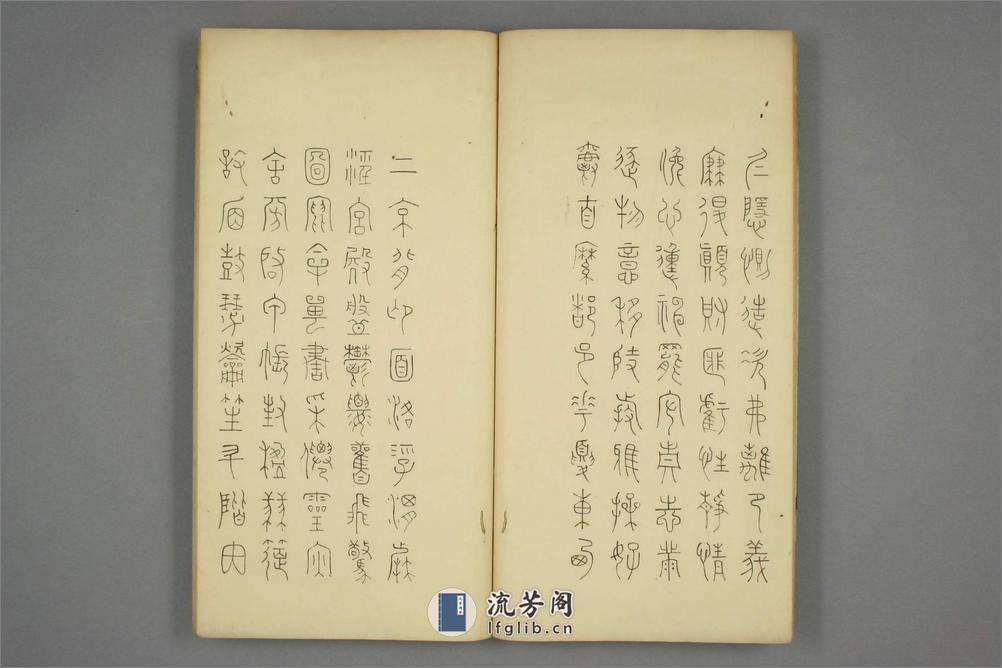 仁隱惻造次弗離節義
廉退顛沛匪虧性靜情
逸心動神疲守真志滿
逐物意移堅持雅操好
爵自縻都邑華夏東西
二京背邙面洛浮渭據
涇宮殿盤鬱樓觀飛驚
圖寫禽獸畫彩仙靈丙
舍傍啟甲帳對楹肆筵
設席鼓瑟吹笙升階内
流芳阁
lfglib.cn